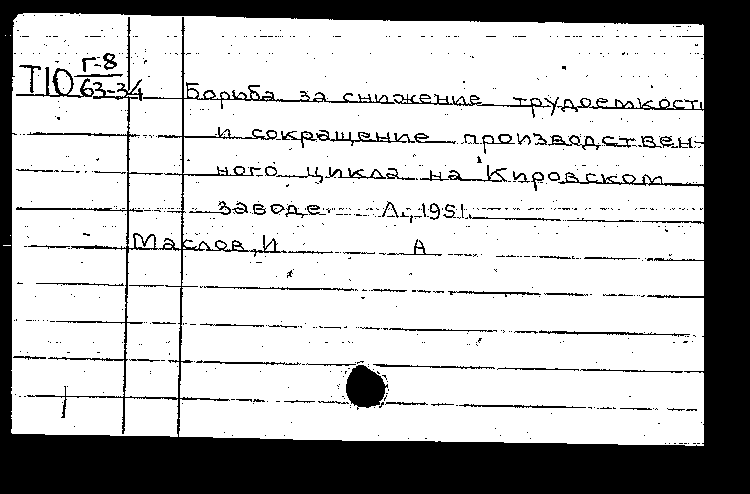 Т10 Г-8
63-34
Борьба за снижение трудоемкости
и сокращение производствен-
ного цикла на Кировском
заводе. Л., 1951.
Маслов, И А